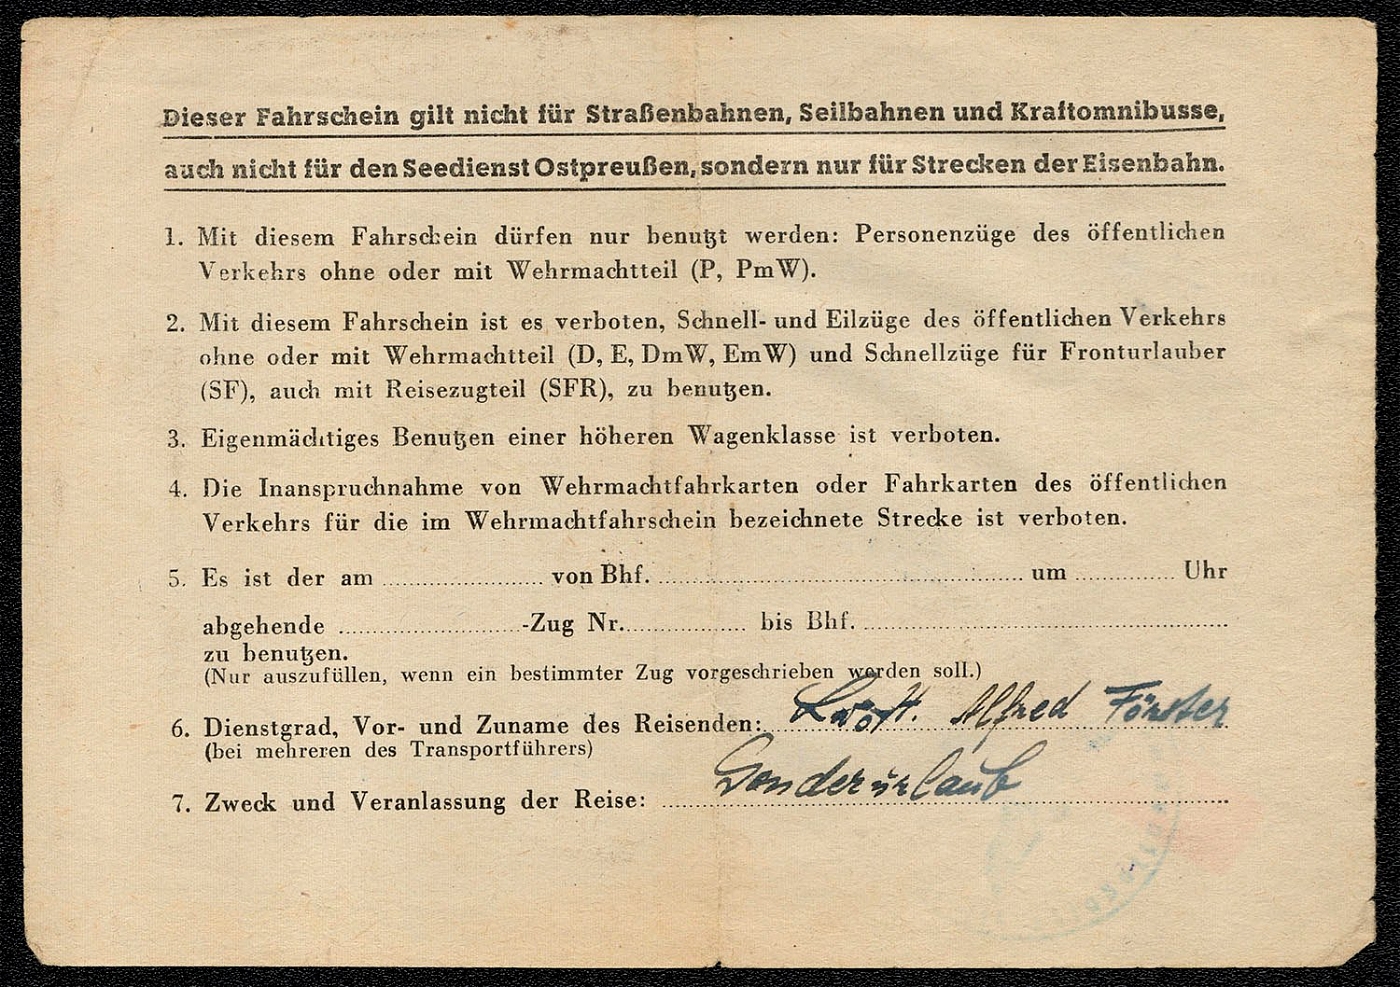 Dieser Fahrschein gilt nicht für Straßenbahnen, Seilbahnen und Kraftomnibusse,
auch nicht für den Seedienst Ostpreußen, sondern nur für Strecken der Eisenbahn.
1. Mit diesem Fahrschein dürfen nur benutzt werden: Personenzüge des öffentlichen
Verkehrs ohne oder mit Wehrmachtteil (P, PmW).
2. Mit diesem Fahrschein ist es verboten, Schnell- und Eilzüge des öffentlichen Verkehrs
ohne oder mit Wehrmachtteil (D, E, DmW, EmW) und Schnellzüge für Fronturlauber
(SF), auch mit Reisezugteil (SFR), zu benutzen.
3. Eigenmächtiges Benutzen einer höheren Wagenklasse ist verboten.
4. Die Inanspruchnahme von Wehrmachtfahrkarten oder Fahrkarten des öffentlichen
Verkehrs für die im Wehrmachtfahrschein bezeichnete Strecke ist verboten.
5. Es ist der am ............ von Bhf. ............ um ............ Uhr
abgehende ............-Zug Nr. ............ bis Bhf. ............
zu benutzen.
(Nur auszufüllen, wenn ein bestimmter Zug vorgeschrieben werden soll.)
6. Dienstgrad, Vor- und Zuname des Reisenden: Alfred Förster
(bei mehreren des Transportführers)
7. Zweck und Veranlassung der Reise: Sonderurlaub